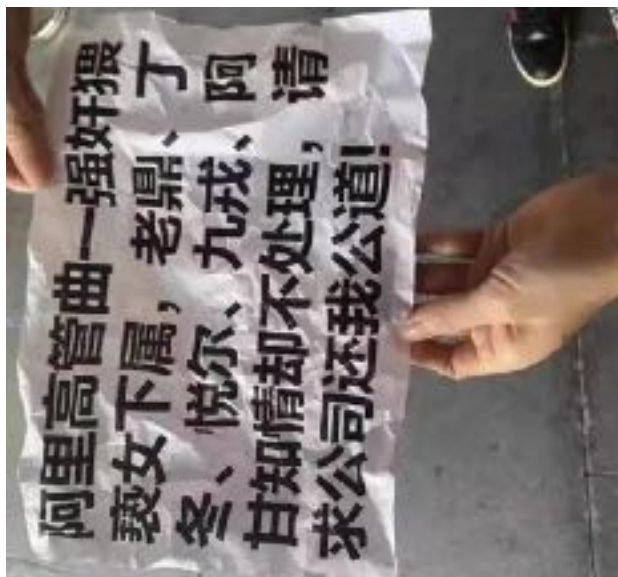 阿里高管曲一强奸猥
亵女下属，老鼎、丁
冬、悦尔、九戎、阿
甘知情却不处理，请
求公司还我公道！